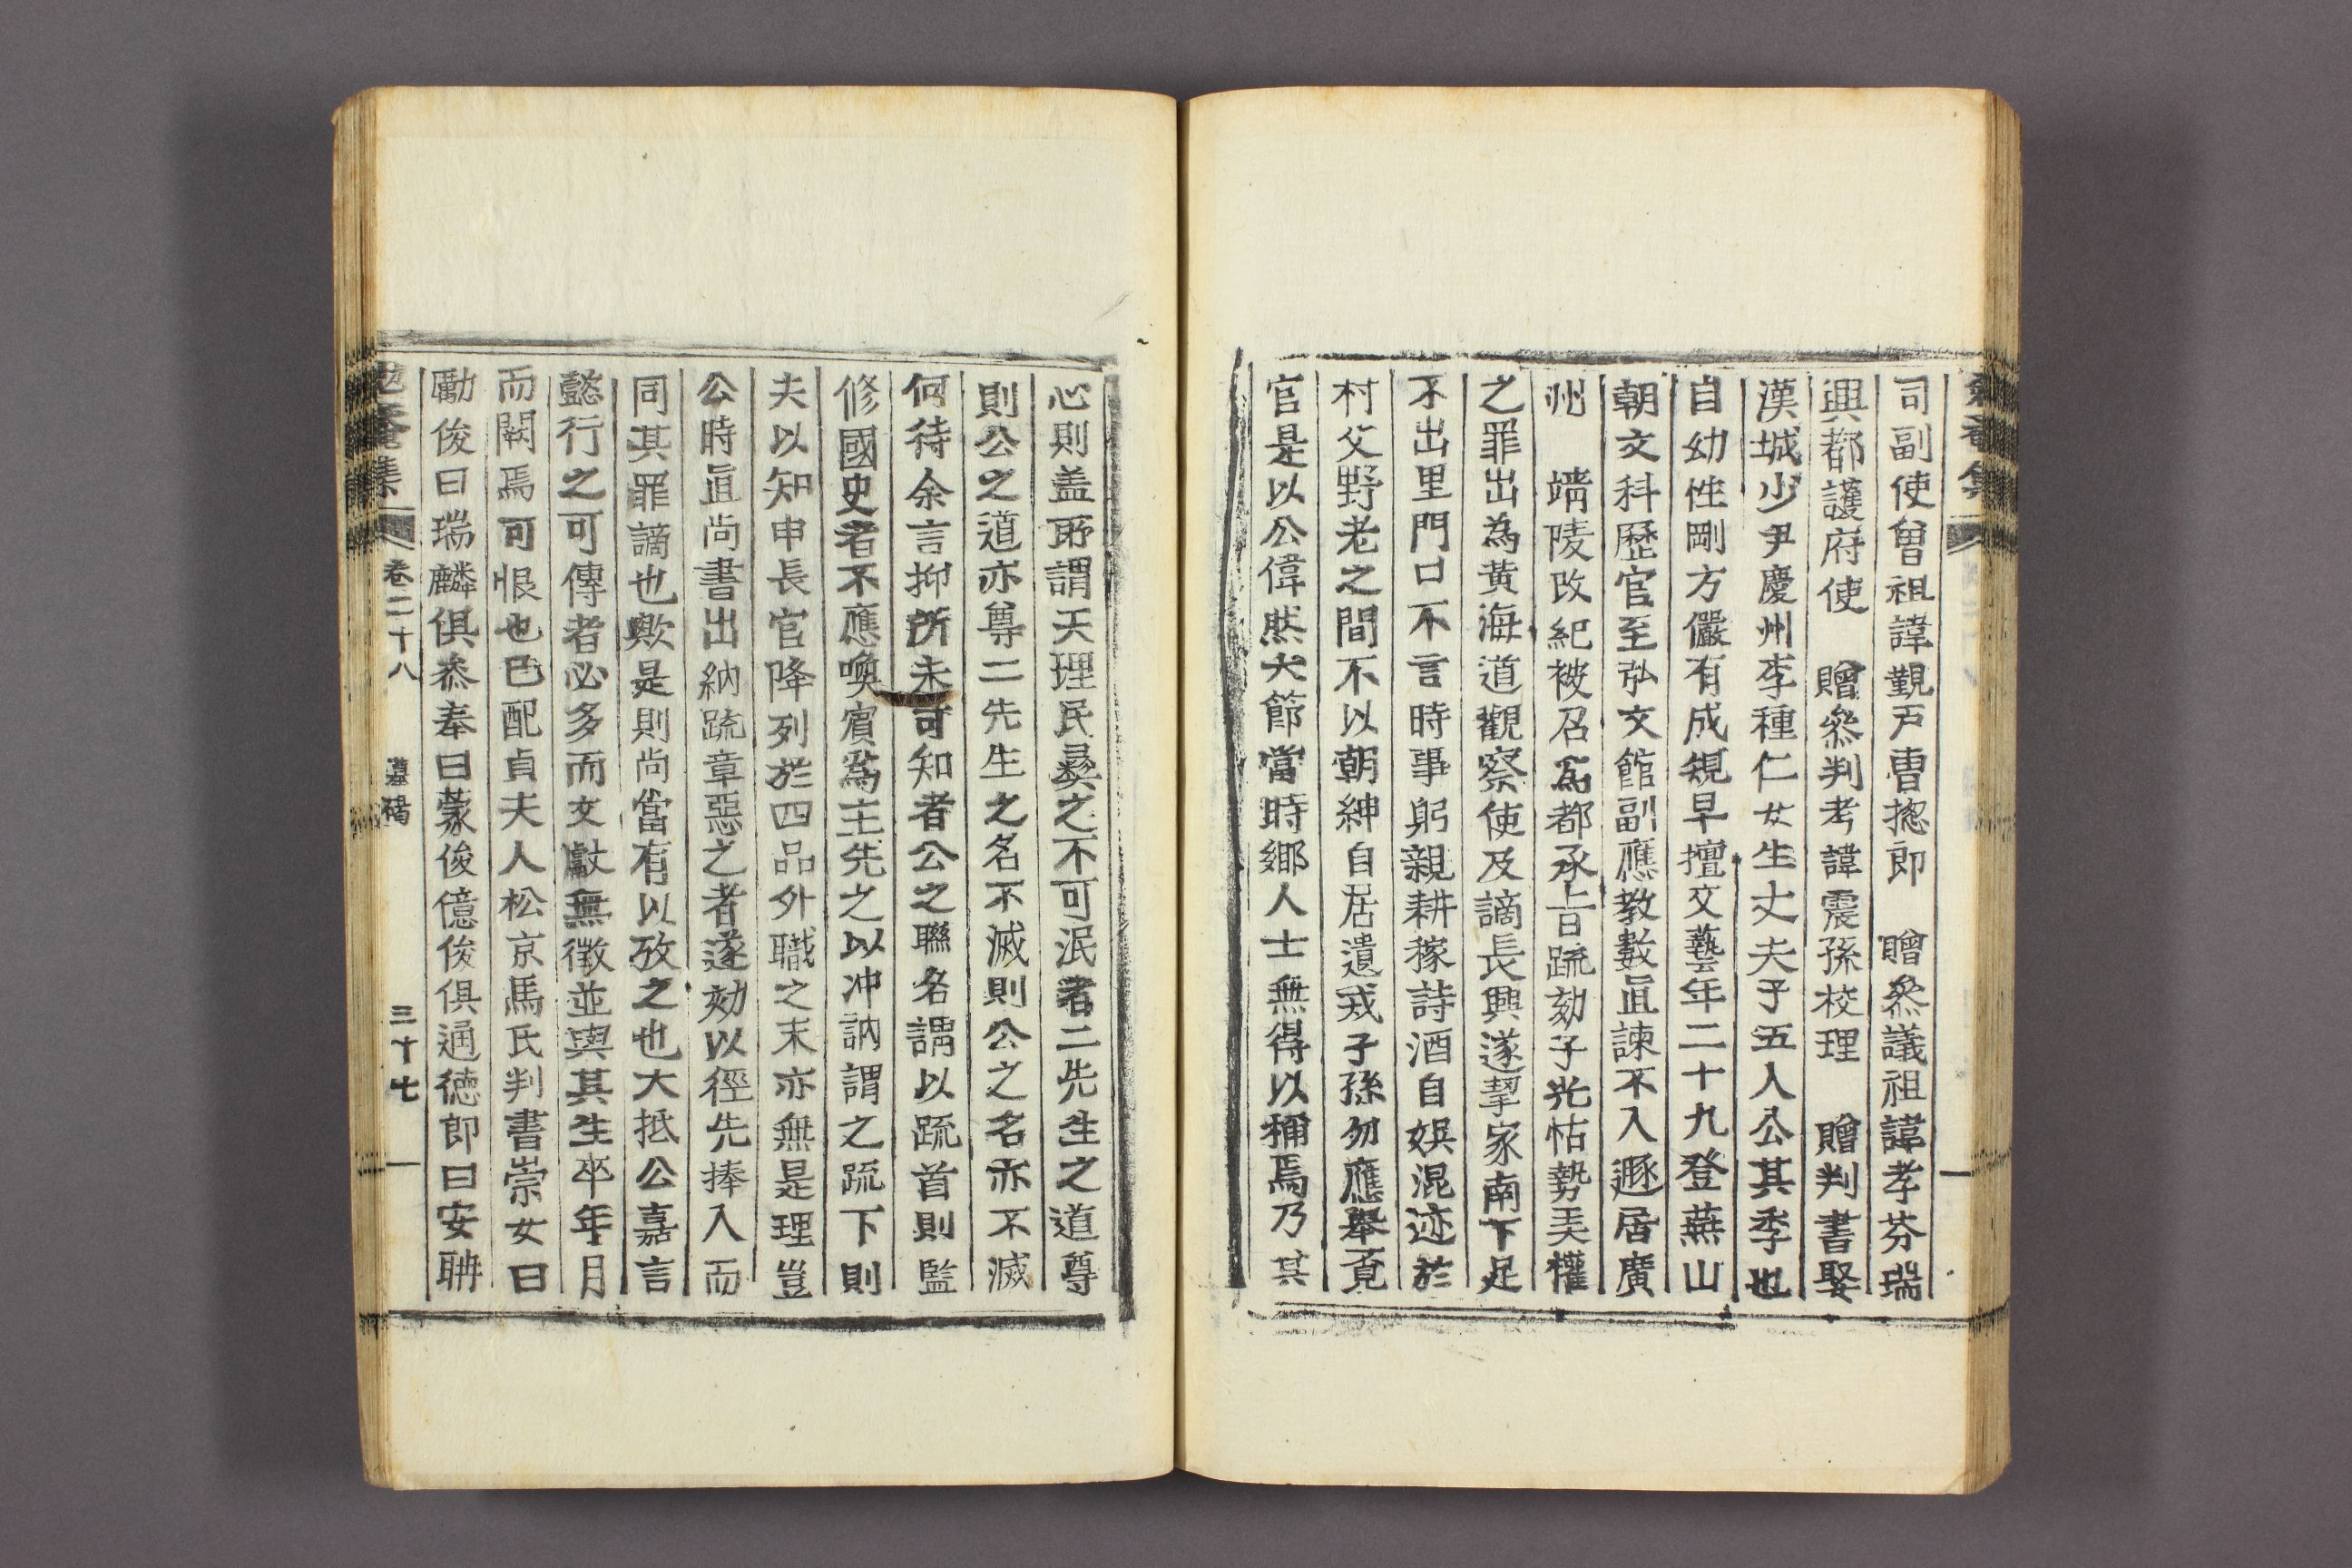 司副使曾祖諱覲戸曹摠郎 贈叅議祖諱孝芬瑞
興都護府使 贈叅判考諱震孫校理 贈判書娶
漢城少尹慶州李種仁女生丈夫子五人公其季也
自幼性剛方儼有成䂓早擅文藝年二十九登蕪山
朝文科歴官至弘文館副應教數直諫不入遯居廣
州 靖陵改紀被召爲都承旨疏劾子光怙勢美權
之罪出為黃海道觀察使及謫長興遂挈家南下足
不出里門口不言時事躬親耕稼詩酒自娛混迹於
村父野老之間不以朝紳自居遺戎子孫勿應舉覔
官是以公偉然大節當時鄉人士無得以稱焉乃其
心則盖所謂天理民彛之不可泯者二先生之道尊
則公之道亦尊二先生之名不滅則公之名亦不滅
何待余言抑所未可知者公之聯名謂以䟽首則監
修國史者不應喚賓為主先之以冲訥謂之䟽下則
夫以知申長官降列於四品外職之末亦無是理豈
公時直尚書出納䟽章惡之者遂劾以徑先捧入而
同其罪謫也歟是則尚當有以攷之也大抵公嘉言
懿行之可傳者必多而文獻無徵並與其生卒年月
而闕焉可恨也已配貞夫人松京馬氏判書崇女曰
勵俊曰瑞麟俱叅奉曰蒙俊億俊俱通德郎曰安聃
勉菴集 卷二十八 墓碣 三十七